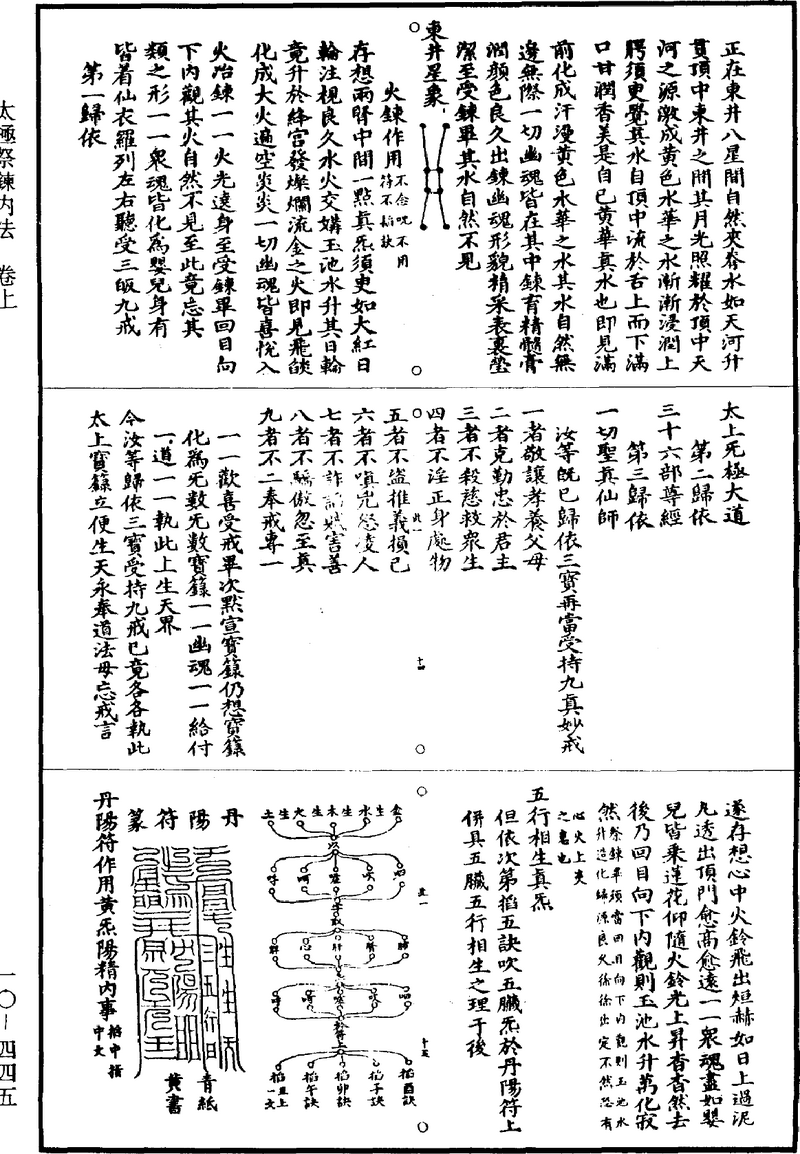 正在東井八星間自然夾脊水如天河升
貫頂中東井之間其月光照耀於頂中天
河之源激成黃色水華之水漸漸浸潤上
腭須更覺其水自頂中流於舌上而下滿
口甘潤香美是自己黃華真水也即見滿
前化成汗漫黃色水華之水其水自然無
邊無際一切幽魂皆在其中鍊育精髓膏
潤顏色良久出鍊幽魂形貌精采表裏瑩
潔至受鍊畢其水自然不見
東井星象
火鍊作用 不念呪不用符不掐訣
存想兩腎中間一點真炁須更如大紅日
輪注視良久水火交媾玉池水升其日輪
竟升於絳宮發燦爛流金之火即見飛燄
化成大火遍空炎炎一切幽魂皆喜悅入
火冶鍊一一火光遶身至受鍊畢回目向
下內觀其火自然不見至此竟忘其
類之形一一眾魂皆化為嬰兒身有
皆着仙衣羅列左右聽受三皈九戒
第一歸依
太上无極大道
第二歸依
三十六部尊經
第三歸依
一切聖真仙師
汝等既已歸依三寶再當受持九真妙戒
一者敬讓孝養父母
二者克勤忠於君主
三者不殺慈救眾生
四者不淫正身處物
五者不盜推義損己
六者不嗔兇怒凌人
七者不詐諂賊害善
八者不驕傲忽至真
九者不二奉戒專一
一一歡喜受戒畢次默宣寶籙仍想寶籙
化為无數无數寶籙一一幽魂一一給付
一道一一執此上生天界
今汝等歸依三寶受持九戒已竟各各執此
太上寶籙立便生天永奉道法毋忘戒言
遂存想心中火鈴飛出烜赫如日上過泥
丸透出頂門愈高愈遠一一眾魂盡如嬰
兒皆乘蓮花仰隨火鈴光上昇杳杳然去
後乃回目向下內觀則玉池水升萬化寂
然 祭鍊畢須當回目向下內觀則玉池水升造化歸源良久徐徐出定不然恐有
心火上炎之患也
五行相生真炁
但依次第掐五訣吹五臟炁於丹陽符上
併具五臟五行相生之理于後
金生水生木生火生土
掐酉訣
掐子訣
掐卯訣
掐午訣
丹陽符篆
青紙黃書
丹陽符作用黃炁陽精內事 掐中指中文
太極祭鍊內法 卷上
一〇—四四五